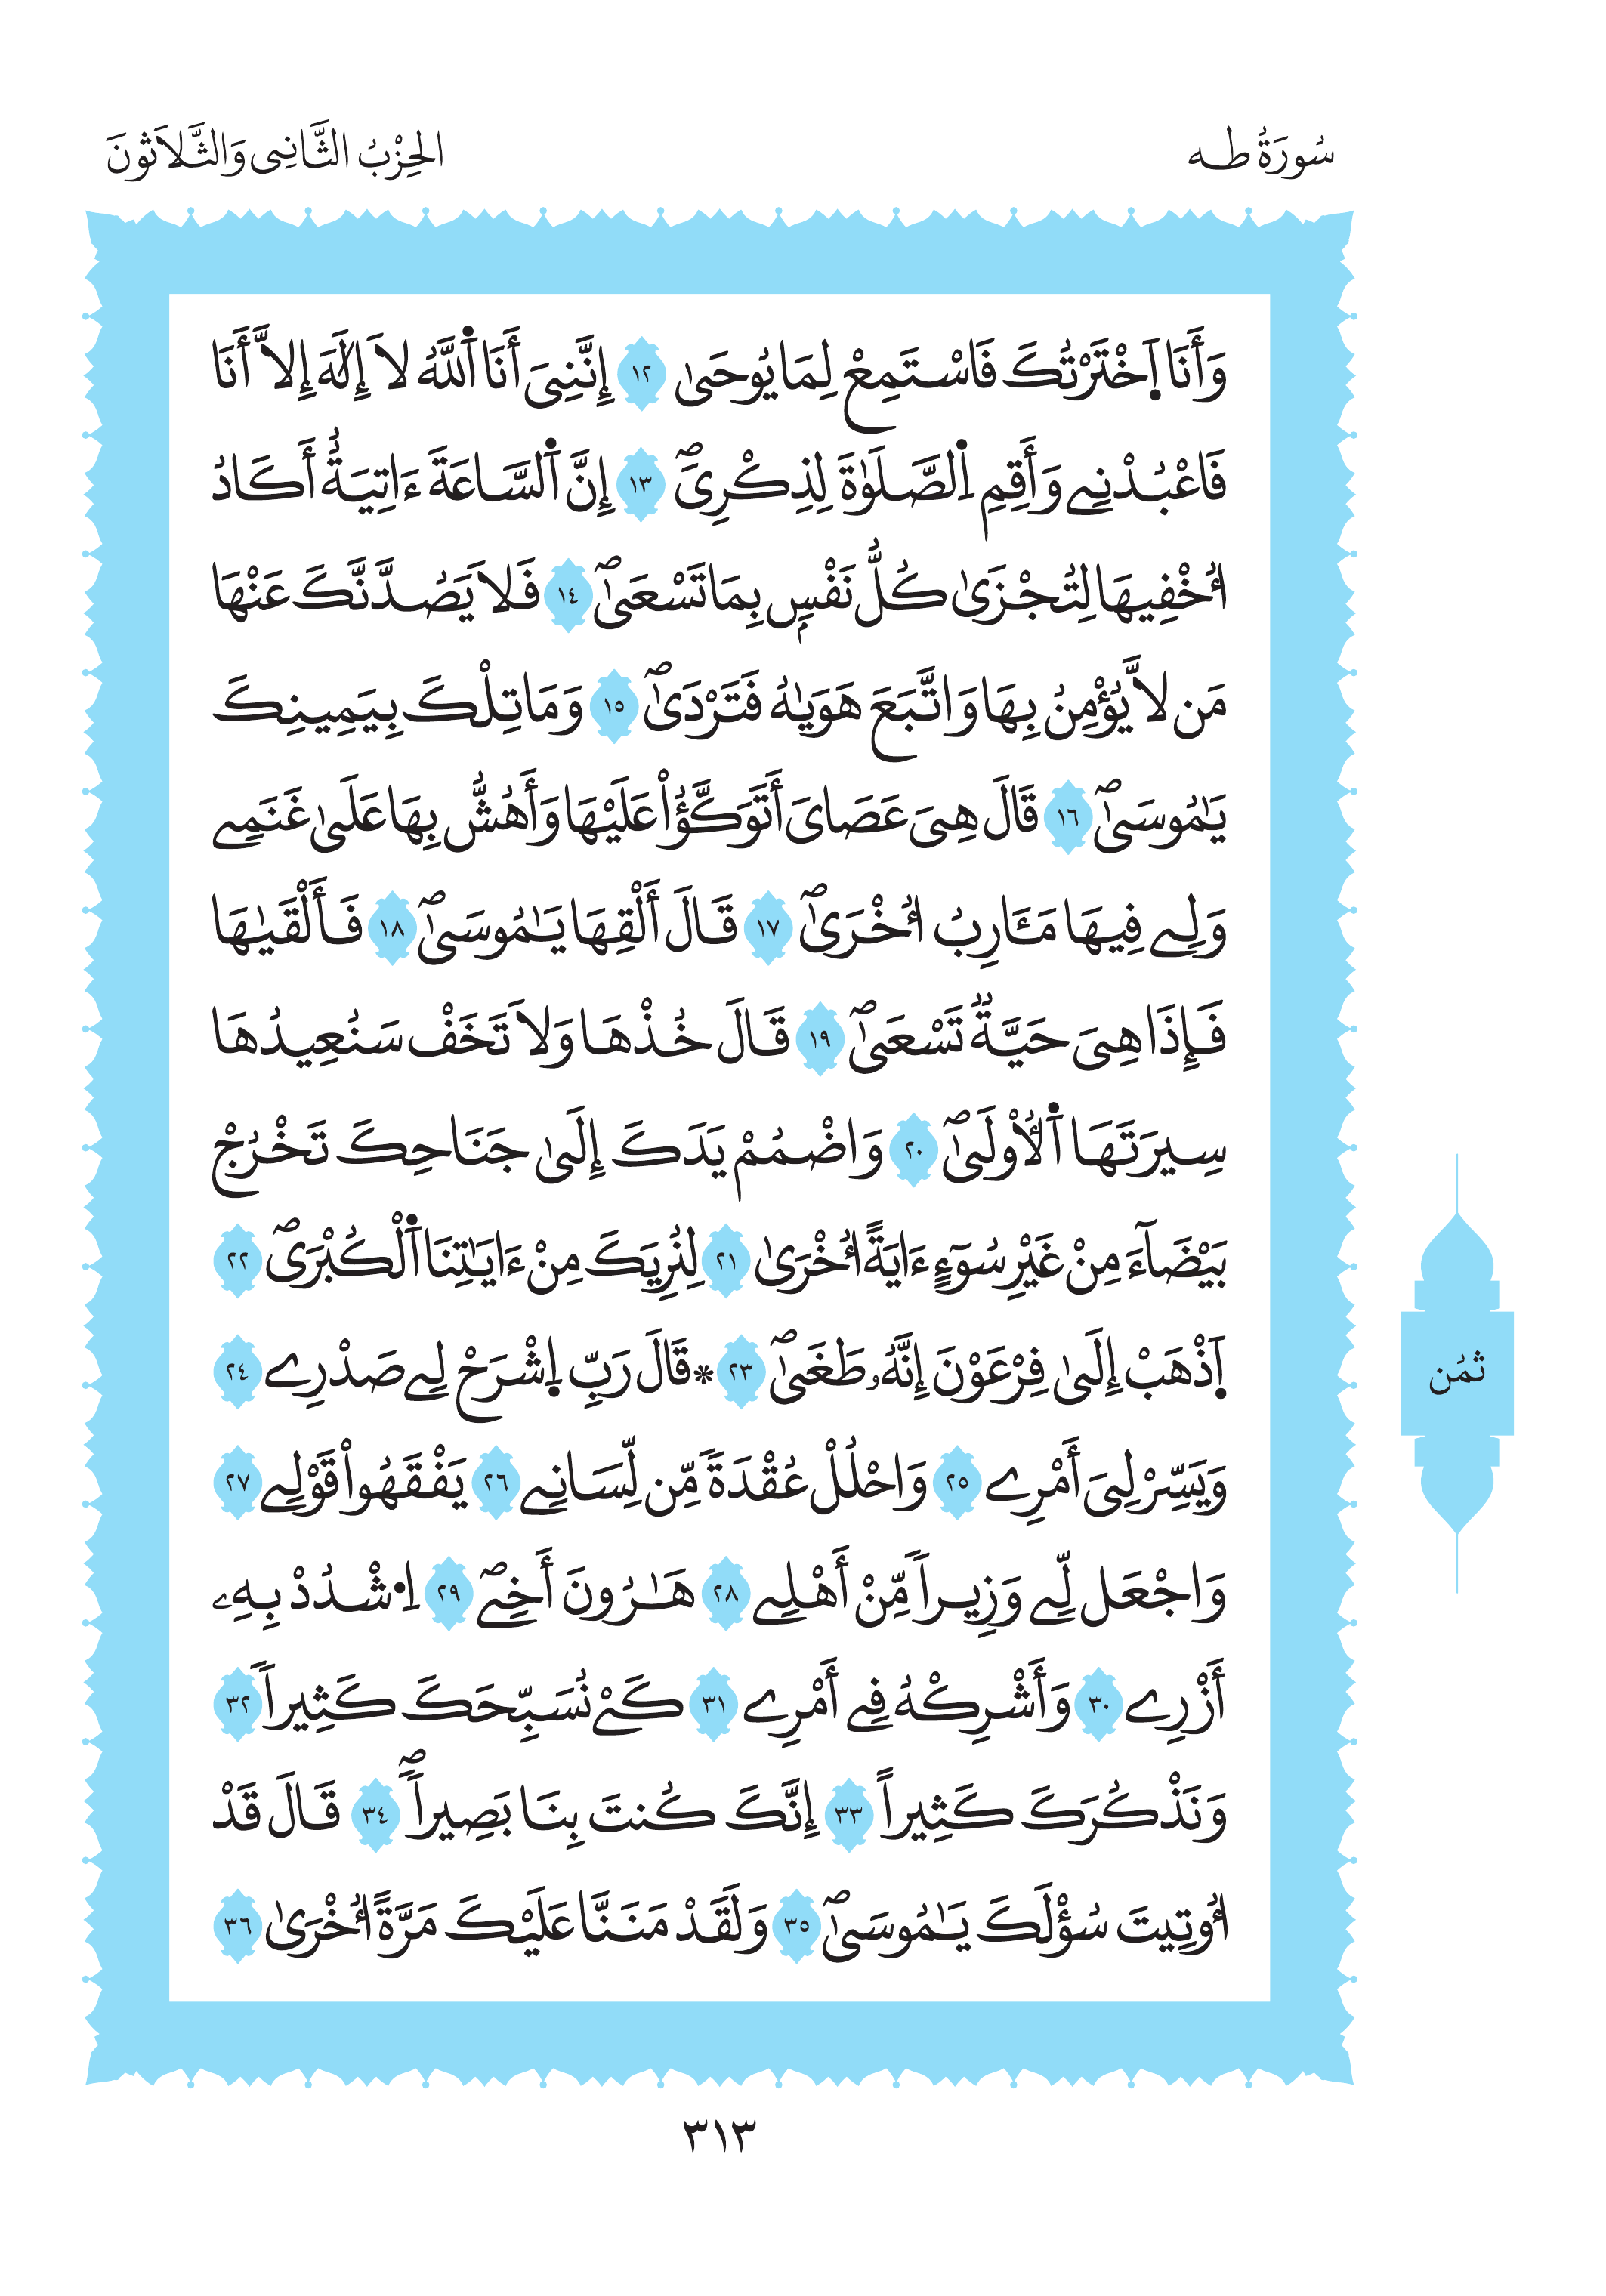 سُورَةُ طـه
الحِزْبُ الثَّانِى وَالثَّلَاثُونَ
وَأَنَا اَ۪خْتَرْتُكَ فَاسْتَمِعْ لِمَا يُوحَىٰ ١٢ إِنَّنِىَ أَنَا اَ۬للَّهُ لَا إِلَٰهَ إِلَّا أَنَا
فَاعْبُدْنِے وَأَقِمِ اِ۬لصَّلَوٰةَ لِذِكْرِىَۖ ١٣ إِنَّ اَ۬لسَّاعَةَ ءَاتِيَةٌ أَكَادُ
أُخْفِيهَا لِتُجْزَىٰ كُلُّ نَفْسِۢ بِمَا تَسْعَىٰۖ ١٤ فَلَا يَصُدَّنَّكَ عَنْهَا
مَن لَّا يُؤْمِنُ بِهَا وَاتَّبَعَ هَوَيٰهُ فَتَرْدَىٰۖ ١٥ وَمَا تِلْكَ بِيَمِينِكَ
يَٰمُوسَىٰۖ ١٦ قَالَ هِىَ عَصَاىَ أَتَوَكَّؤُاْ عَلَيْهَا وَأَهُشُّ بِهَا عَلَىٰ غَنَمِے
وَلِے فِيهَا مَـَٔارِبُ أُخْرَىٰۖ ١٧ قَالَ أَلْقِهَا يَٰمُوسَىٰۖ ١٨ فَأَلْقَيٰهَا
فَإِذَا هِىَ حَيَّةٌ تَسْعَىٰۖ ١٩ قَالَ خُذْهَا وَلَا تَخَفْ سَنُعِيدُهَا
سِيرَتَهَا اَ۬لْأُولَىٰۖ ٢٠ وَاضْمُمْ يَدَكَ إِلَىٰ جَنَاحِكَ تَخْرُجْ
بَيْضَآءَ مِنْ غَيْرِ سُوٓءٍ ءَايَةً أُخْرَىٰ ٢١ لِنُرِيَكَ مِنْ ءَايَٰتِنَا اَ۬لْكُبْرَىۖ ٢٢
اَ۪ذْهَبْ إِلَىٰ فِرْعَوْنَ إِنَّهُۥ طَغَىٰۖ ٢٣ * قَالَ رَبِّ اِ۪شْرَحْ لِے صَدْرِے ٢٤
وَيَسِّرْ لِىَ أَمْرِے ٢٥ وَاحْلُلْ عُقْدَةً مِّن لِّسَانِے ٢٦ يَفْقَهُواْ قَوْلِے ٢٧
وَاجْعَل لِّے وَزِيراً مِّنْ أَهْلِے ٢٨ هَٰرُونَ أَخِےۖ ٢٩ اِ۟شْدُدْ بِهِۦ
أَزْرِے ٣٠ وَأَشْرِكْهُ فِے أَمْرِے ٣١ كَےْ نُسَبِّحَكَ كَثِيراً ٣٢
وَنَذْكُرَكَ كَثِيراً ٣٣ إِنَّكَ كُنتَ بِنَا بَصِيراًۖ ٣٤ قَالَ قَدْ
أُوتِيتَ سُؤْلَكَ يَٰمُوسَىٰۖ ٣٥ وَلَقَدْ مَنَنَّا عَلَيْكَ مَرَّةً أُخْرَىٰ ٣٦
ثمُن
٣١٣